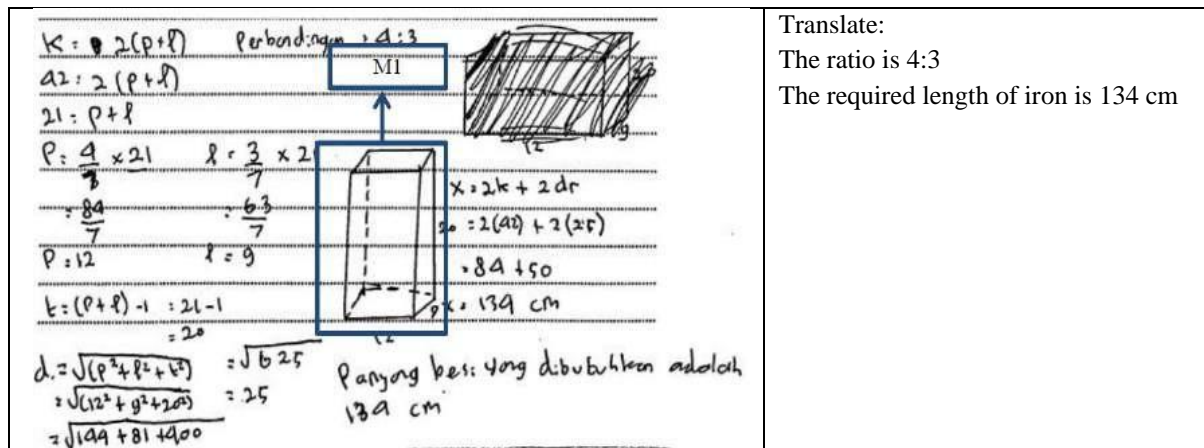 K = 2(p+l) Perbandingan = 4:3
M1
42 = 2(p+l)
21 = p+l
P = 4/7 × 21 l = 3/7 × 21
= 84/7 = 63/7
P = 12 l = 9
t = (p+l) - 1 = 21 - 1
= 20
d = √(p²+l²+t²) = √625
= √(12²+9²+20²) = 25
= √144 + 81 + 400
12
9
20
12
9
x = 2k + 2dr
= 2(42) + 2(25)
= 84 + 50
x = 134 cm
Panjang besi yang dibutuhkan adalah
134 cm
Translate:
The ratio is 4:3
The required length of iron is 134 cm